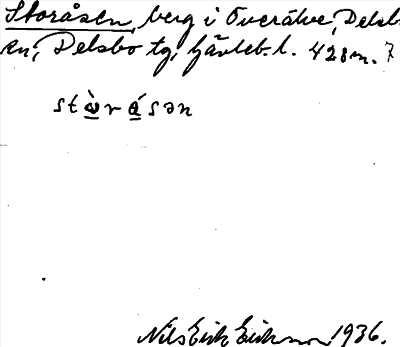 Storåsen, berg i Överälve, Delsb
en, Delsbo tg, Gävleb. l. 428 m. 7
stòråsən
Nils Erik Erikson 1936.